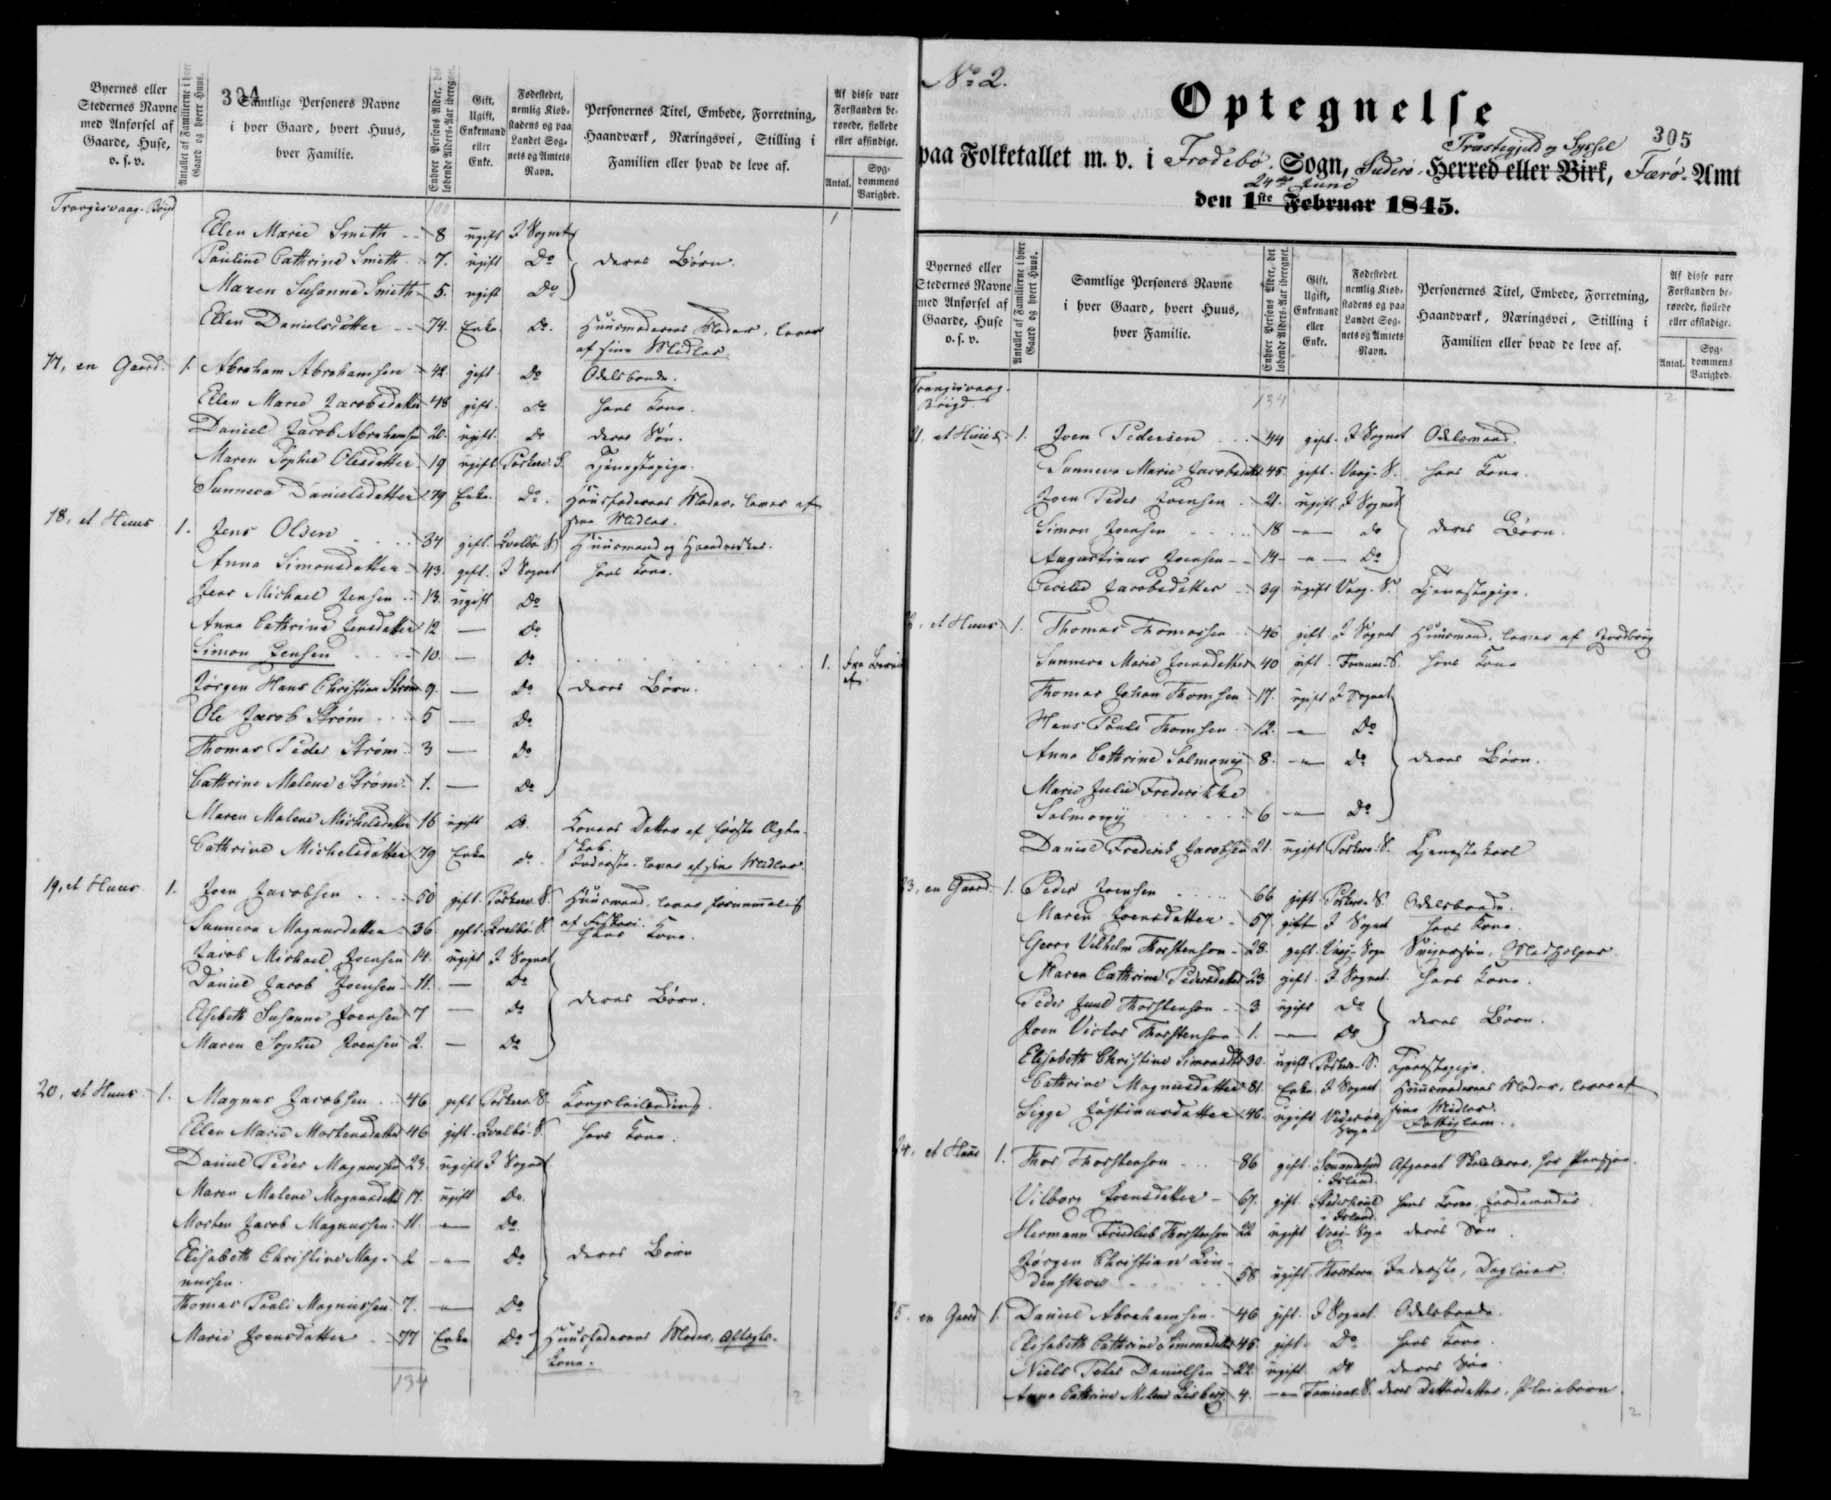 304
Byernes eller Stedernes Navne med Anførsel af Gaarde, Huse, o. s. v.
Antallet af Familierne i hver Gaard og hvert Huus.
Samtlige Personers Navne i hver Gaard, hvert Huus, hver Familie.
Enhver Persons Alder, det løbende Alders-Aar iberegnet.
Gift, Ugift, Enkemand eller Enke.
Fødestedet, nemlig Kiøbstadens og paa Landet Sognets og Amtets Navn.
Personernes Titel, Embede, Forretning, Haandværk, Næringsvei, Stilling i Familien eller hvad de leve af.
Af disse vare Forstanden berøvede, fiollede eller afsindige.
Antal.
Sygdommens Varighed.
Trangisvaag-Bÿgd
Ellen Marie Smith 8 ugift I Sognet
Pauline Cathrine Smith 7. ugift Do deres Børn.
Maren Susanne Smith 5. ugift Do
Ellen Danielsdatter 74. Enke Do. Huusmoderens Moder, lever
af sine Midler
17, en Gaard. 1. Abraham Abrahamsen 42. gift Do Odelsbonde.
Ellen Marie Jacobsdatter 48 gift. Do hans Kone.
Daniel Jacob Abrahamsen 20. ugift. Do deres Søn.
Maren Sophie Olesdatter 19 ugift Porkere S. Tjenestepige.
Sunneva Danielsdatter 79 Enke. Do. Huusfaderens Moder, lever af
sine Midler.
18, et Huus 1. Jens Olsen 34 gift. Qvalbø S. Huusmand og Haandværker.
Anna Simonsdatter 43. gift. I Sognet hans Kone.
Jens Michael Jensen 13. ugift Do
Anna Cathrine Jensdatter 12 — Do
Simon Jensen 10. — Do 1. Fra
Jørgen Hans Christian Strøm 9. — Do deres Børn.
Ole Jacob Strøm 5 — Do
Thomas Peder Strøm 3 — Do
Cathrine Malene Strøm 1. — Do
Maren Malene Michelsdatter 16 ugift Do. Konens Datter af første Ægte-
skab.
Cathrine Michelsdatter 79 Enke Do. Inderste, lever af sine Midler.
19, et Huus 1. Joen Jacobsen 50 gift. Porkere S. Huusmand, lever fornemmelig
af Fiskeri.
Sunneva Magnusdatter 36. gift. Qvalbø S. hans Kone.
Jacob Michael Joensen 14. ugift I Sognet
Daniel Jacob Joensen 11. — Do
Elsebeth Susanne Joensen 7 — Do deres Børn.
Maren Sophie Joensen 2. — Do
20, et Huus 1. Magnus Jacobsen 46 gift Porkere S. Kongsleilending.
Ellen Marie Mortensdatter 46 gift. Qvalbø S. hans Kone.
Daniel Peder Magnussen 23. ugift I Sognet
Maren Malene Magnusdatter 17. ugift Do.
Morten Jacob Magnussen 11. — Do
Elisabeth Christine Mag- 2 — Do deres Børn
nussen.
Thomas Pauli Magnussen 7. — Do
Marie Joensdatter 77 Enke Do Huusfaderens Moder, Aftægts-
kone.
134
2
No 2.
305
Optegnelse
paa Folketallet m. v. i Frodebø Sogn, Suderø Herred eller Birk, Færø Amt
Præstegjeld og Syssel
24de Juni
den 1ste Februar 1845.
Byernes eller Stedernes Navne med Anførsel af Gaarde, Huse o. s. v.
Antallet af Familierne i hver Gaard og hvert Huus.
Samtlige Personers Navne i hver Gaard, hvert Huus, hver Familie.
Enhver Persons Alder, det løbende Alders-Aar iberegnet.
Gift, Ugift, Enkemand eller Enke.
Fødestedet, nemlig Kiøbstadens og paa Landet Sognets og Amtets Navn.
Personernes Titel, Embede, Forretning, Haandværk, Næringsvei, Stilling i Familien eller hvad de leve af.
Af disse vare Forstanden berøvede, fiollede eller afsindige.
Antal.
Sygdommens Varighed.
Trangisvaag-
Bÿgd.
134
2
21, et Huus. 1. Joen Pedersen 44 gift. I Sognet Odelsmand.
Sunneva Marie Jacobsdatter 45. gift. Vaag-S. hans Kone.
Joen Peder Joensen 21. ugift I Sognet
Simon Joensen 18 — Do deres Børn.
Augustinus Joensen 14 — Do
Cecilia Jacobsdatter 39 ugift Vaag-S. Tjenestepige.
et Huus 1. Thomas Thomassen 46 gift. I Sognet Huusmand, lever af Jordbrug
Sunneva Marie Joensdatter 40 gift. S. hans Kone
Thomas Johan Thomsen 17. ugift I Sognet
Hans Pauli Thomsen 12. — Do
Anna Cathrine Salmony 8. — Do deres Børn.
Marie Julie Frederikke
Salmony 6 — Do
Daniel Frederik Jacobsen 21. ugift Porkere S. Tjenestekarl
23, en Gaard. 1. Peder Joensen 66 gift. Porkere S. Odelsbonde.
Maren Joensdatter 57. gift I Sognet hans Kone.
Georg Vilhelm Thorstenson 28. gift. Vaag-Sogn Svigersøn, Medhjelper
Maren Cathrine Pedersdatter 23 gift. I Sognet. hans Kone.
Peder Juul Thorstenson 3 ugift Do deres Børn.
Joen Victor Thorstenson 1. — Do
Elisabeth Christine Simonsdtr 30. ugift Porkere S. Tjenestepige.
Cathrine Magnusdatter 81. Enke I Sognet Huusmoderens Moder, lever af
sine Midler.
Sigge Justinusdatter 46. ugift Viderøe Sogn Fattiglem.
24, et Huus 1. Thor Thorstenson 86 gift. i Island. Afgaaet
Vilborg Joensdatter 67. gift. i Island. hans Kone, Jordemoder
Hermann Friedlieb Thorstenson 22 ugift Vaag-Sogn deres Søn
Jørgen Christian Lin-
denskov 58 ugift. Thorshavn Inderste, Dagleier.
25. en Gaard 1. Daniel Abrahamsen 46 gift. I Sognet. Odelsbonde.
Elisabeth Cathrine Simonsdatter 45. gift. Do hans Kone.
Niels Peter Danielsen 22. ugift Do deres Søn
Anna Cathrine Malene 4. — S. deres Datterdatter, Pleiebarn.
2